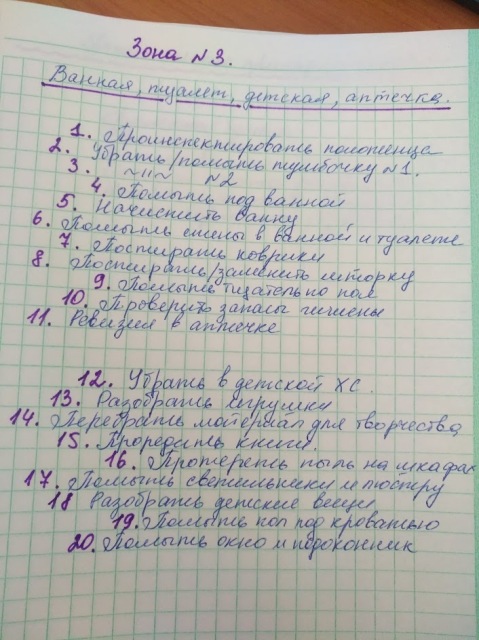 Зона №3.
Ванная, туалет, детская, аптечка.
1. Проинспектировать полотенца
2. Убрать/помыть тумбочку №1.
3. ~ıı~ №2
4. Помыть под ванной
5. Начистить ванну
6. Помыть стены в ванной и туалете
7. Постирать коврики
8. Постирать/заменить шторку
9. Помыть тщательно пол
10. Проверить запасы гигиены
11. Ревизия в аптечке
12. Убрать в детской ХС.
13. Разобрать игрушки
14. Перебрать материал для творчества
15. Проредить книги.
16. Протереть пыль на шкафах
17. Помыть светильники и люстру
18 Разобрать детские вещи
19. Помыть пол под кроватью
20. Помыть окно и подоконник